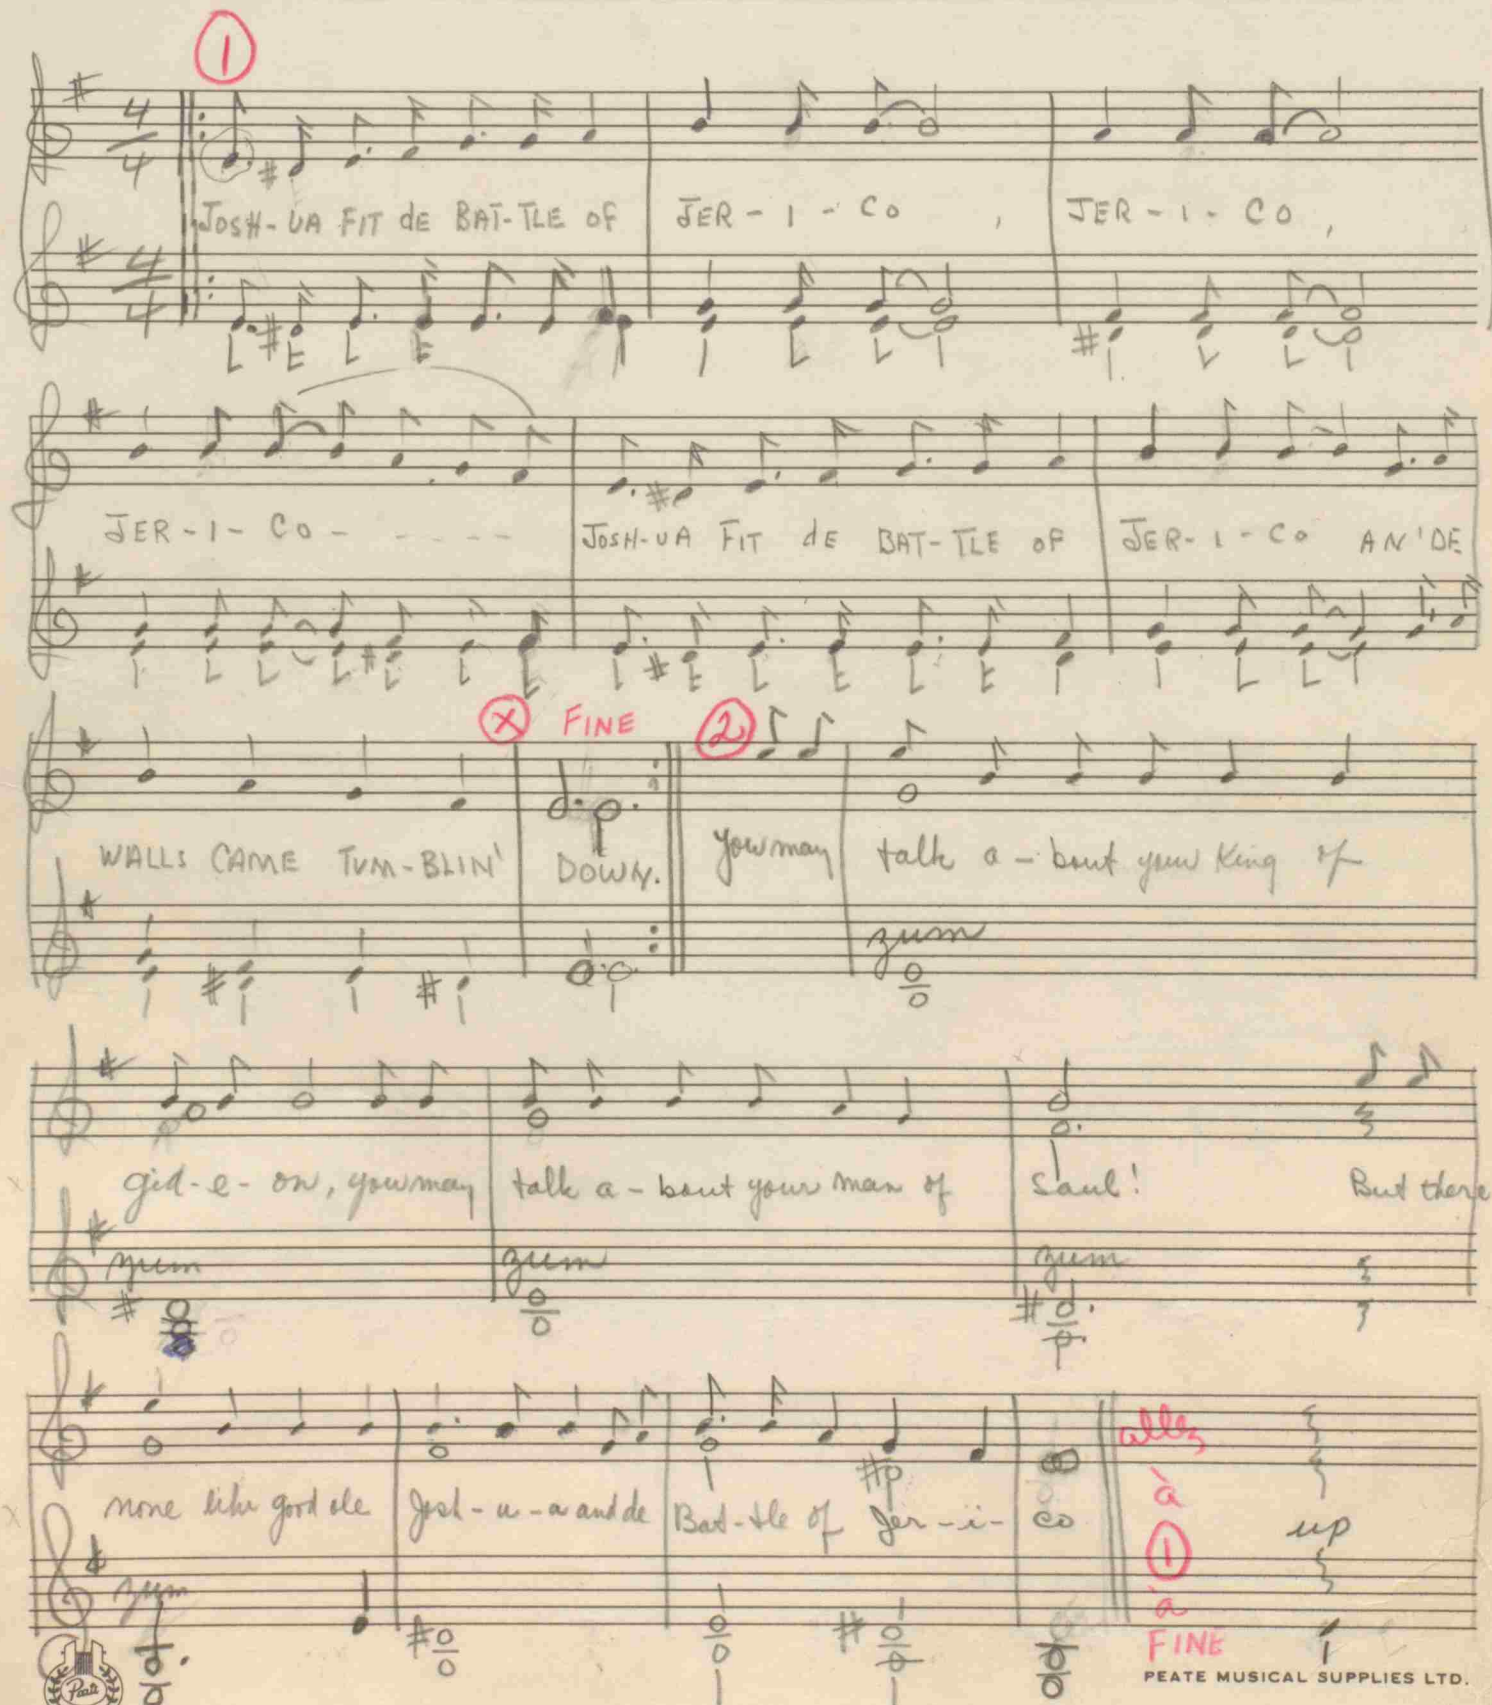 1
4 4
JOSH-UA FIT dE BAT-TLE OF JER-I-CO , JER-I-CO,
4 4
JER-I-CO-----  JOSH-UA FIT dE BAT-TLE OF JER-I-CO AN'DE
X FINE 2
WALLS CAME TUM-BLIN' DOWN. you may talk a-bout your King of
zum
gid-e-on, you may talk a-bout your man of Saul! But there
zum zum zum
none like good ole Josh-u-a and de Bat-tle of Jer-i-co up
zum
allez
à
1
à
FINE
Peate
PEATE MUSICAL SUPPLIES LTD.